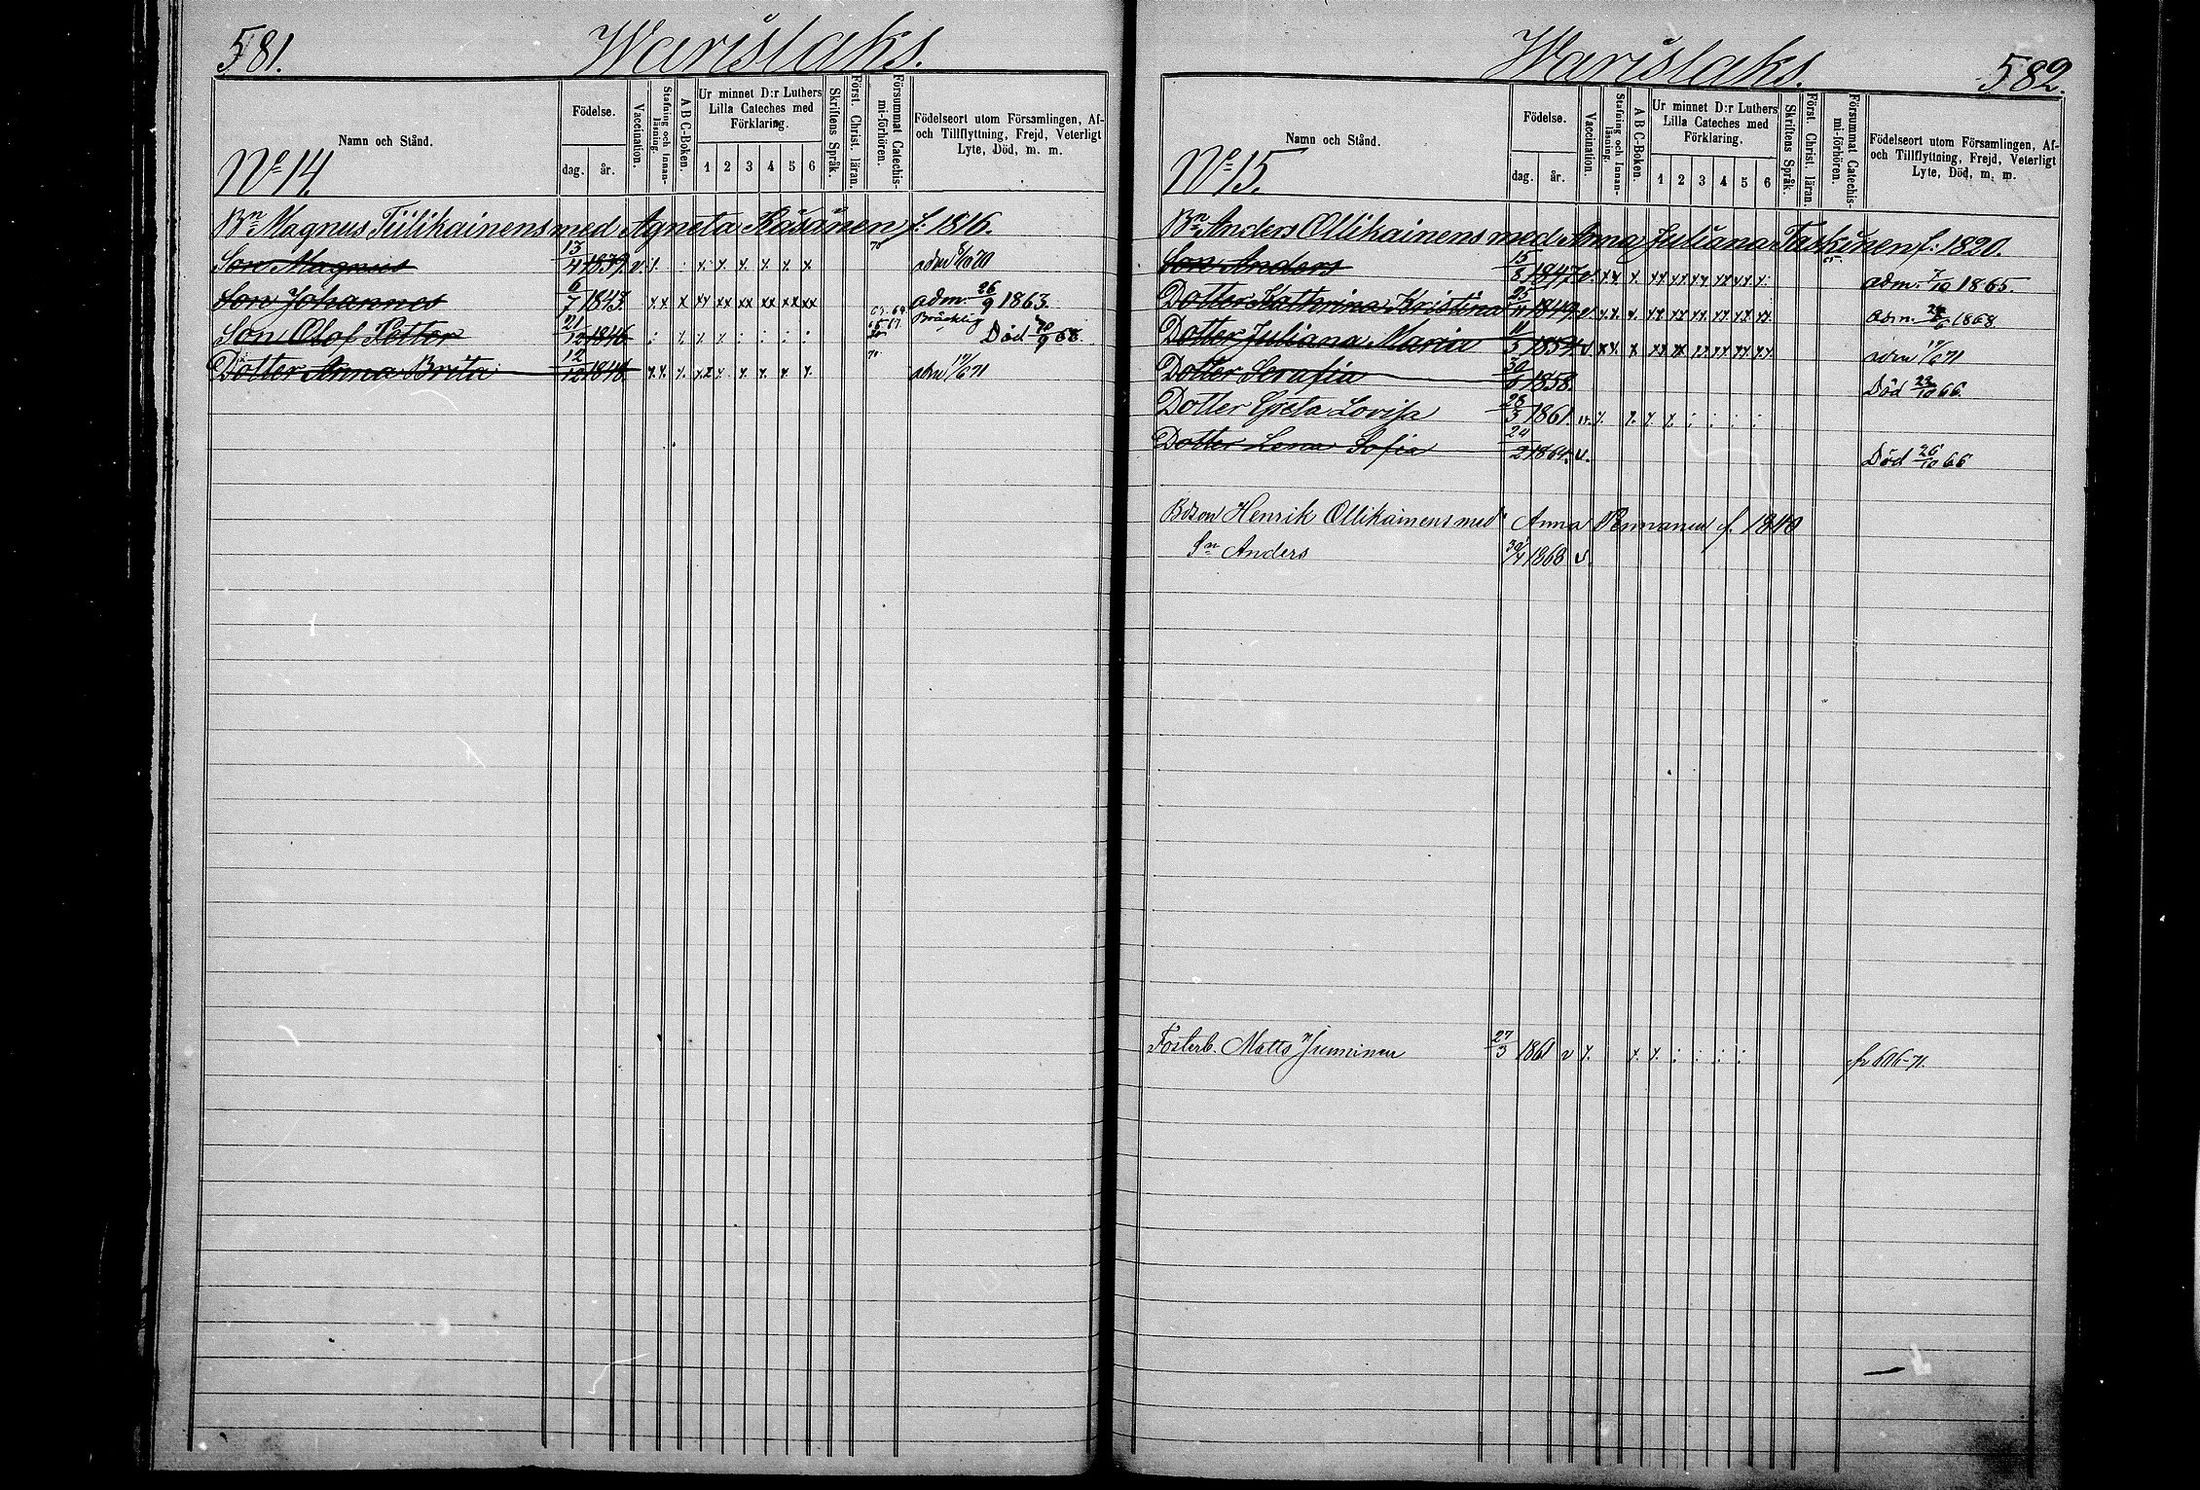 581. Warislaks.
Namn och Stånd.
Födelse.
dag. år.
Vaccination.
Stafning och Innan-läsning.
A B C-Boken.
Ur minnet D:r Luthers Lilla Cateches med Förklaring.
1 2 3 4 5 6
Skriftens Språk.
Först. Christ. läran.
Försummat Catechis-mi-förhören.
Födelseort utom Församlingen, Af- och Tillflyttning, Frejd, Veterligt Lyte, Död, m. m.
No 14.
Bn Magnus Tiilikainens med Agneta Räsänen f. 1816.
Son Magnus 13/4 1839 v. 70
Son Johannes 6/7 1843. xx x xx xx xx xx xx xx adm. 26/9 1863.
Son Olof Petter 21/12 1846 Bräcklig Död 68.
Dotter Anna Brita 12/12 1848 70 adm 71
Warislaks. 582.
Namn och Stånd.
Födelse.
dag. år.
Vaccination.
Stafning och Innan-läsning.
A B C-Boken.
Ur minnet D:r Luthers Lilla Cateches med Förklaring.
1 2 3 4 5 6
Skriftens Språk.
Först. Christ. läran.
Försummat Catechis-mi-förhören.
Födelseort utom Församlingen, Af- och Tillflyttning, Frejd, Veterligt Lyte, Död, m. m.
No 15.
Bn Anders Ollikainens med Anna Juliana Taskinen f. 1820.
Son Anders 15/8 1847 v. 65. adm. 7/10 1865.
Dotter Katharina Kristina 1849 v. adm. 1868
Dotter Juliana Maria 11/5 1854 v adm 71
Dotter Serafia 30/6 1858. Död 23/10 66.
Dotter Greta Lovisa 28/3 1861. v.
Dotter Lena Sofia 24/2 1864. v. Död 26/10 66
Bdson Henrik Ollikainens med Anna Pennanen f. 1840
Sn Anders 30/4 1868 v.
Fosterb. Matts 27/3 1861 v fr 606-71.